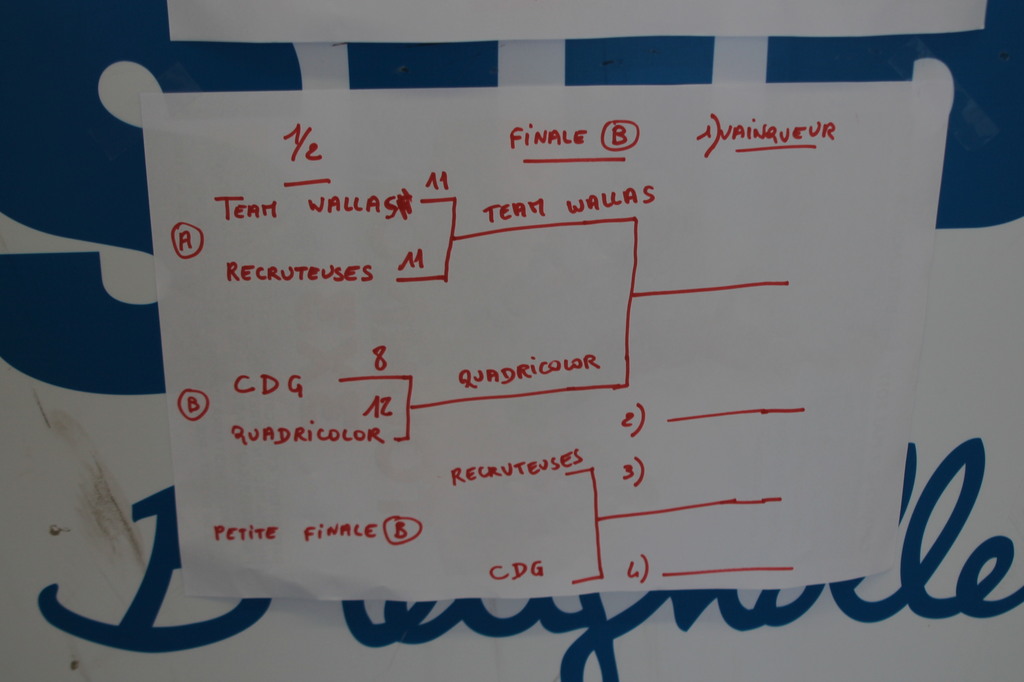 1/2
FINALE B
1) VAINQUEUR
TEAM WALLAS 11
TEAM WALLAS
A
RECRUTEUSES 11
CDG 8
QUADRICOLOR
B
12
QUADRICOLOR
2)
RECRUTEUSES
3)
PETITE FINALE B
CDG
4)